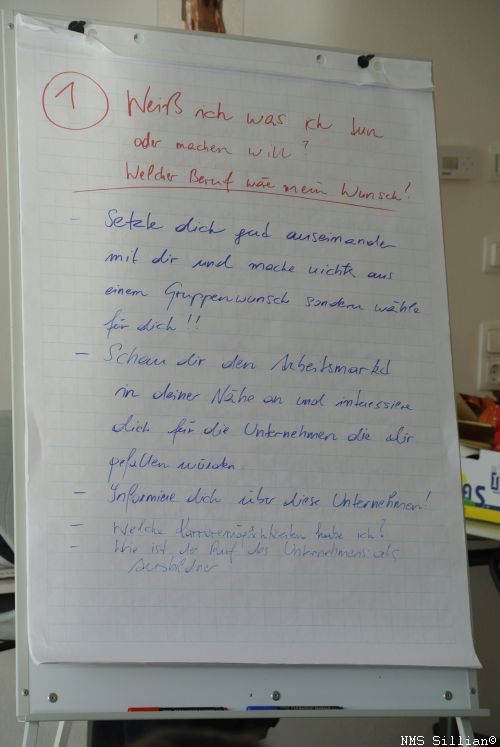 1 Weiß ich was ich tun
oder machen will?
Welcher Beruf wäre mein Wunsch!
- Setzte dich gut auseinander
mit dir und mache nichts aus
einem Gruppenwunsch sondern wähle
für dich!!
- Schau dir den Arbeitsmarkt
in deiner Nähe an und interessiere
dich für die Unternehmen die dir
gefallen würden
- Informiere dich über diese Unternehmen!
- Welche Karrieremöglichkeiten habe ich?
- Wie ist der Ruf des Unternehmens als
Ausbildner
NMS Sillian©